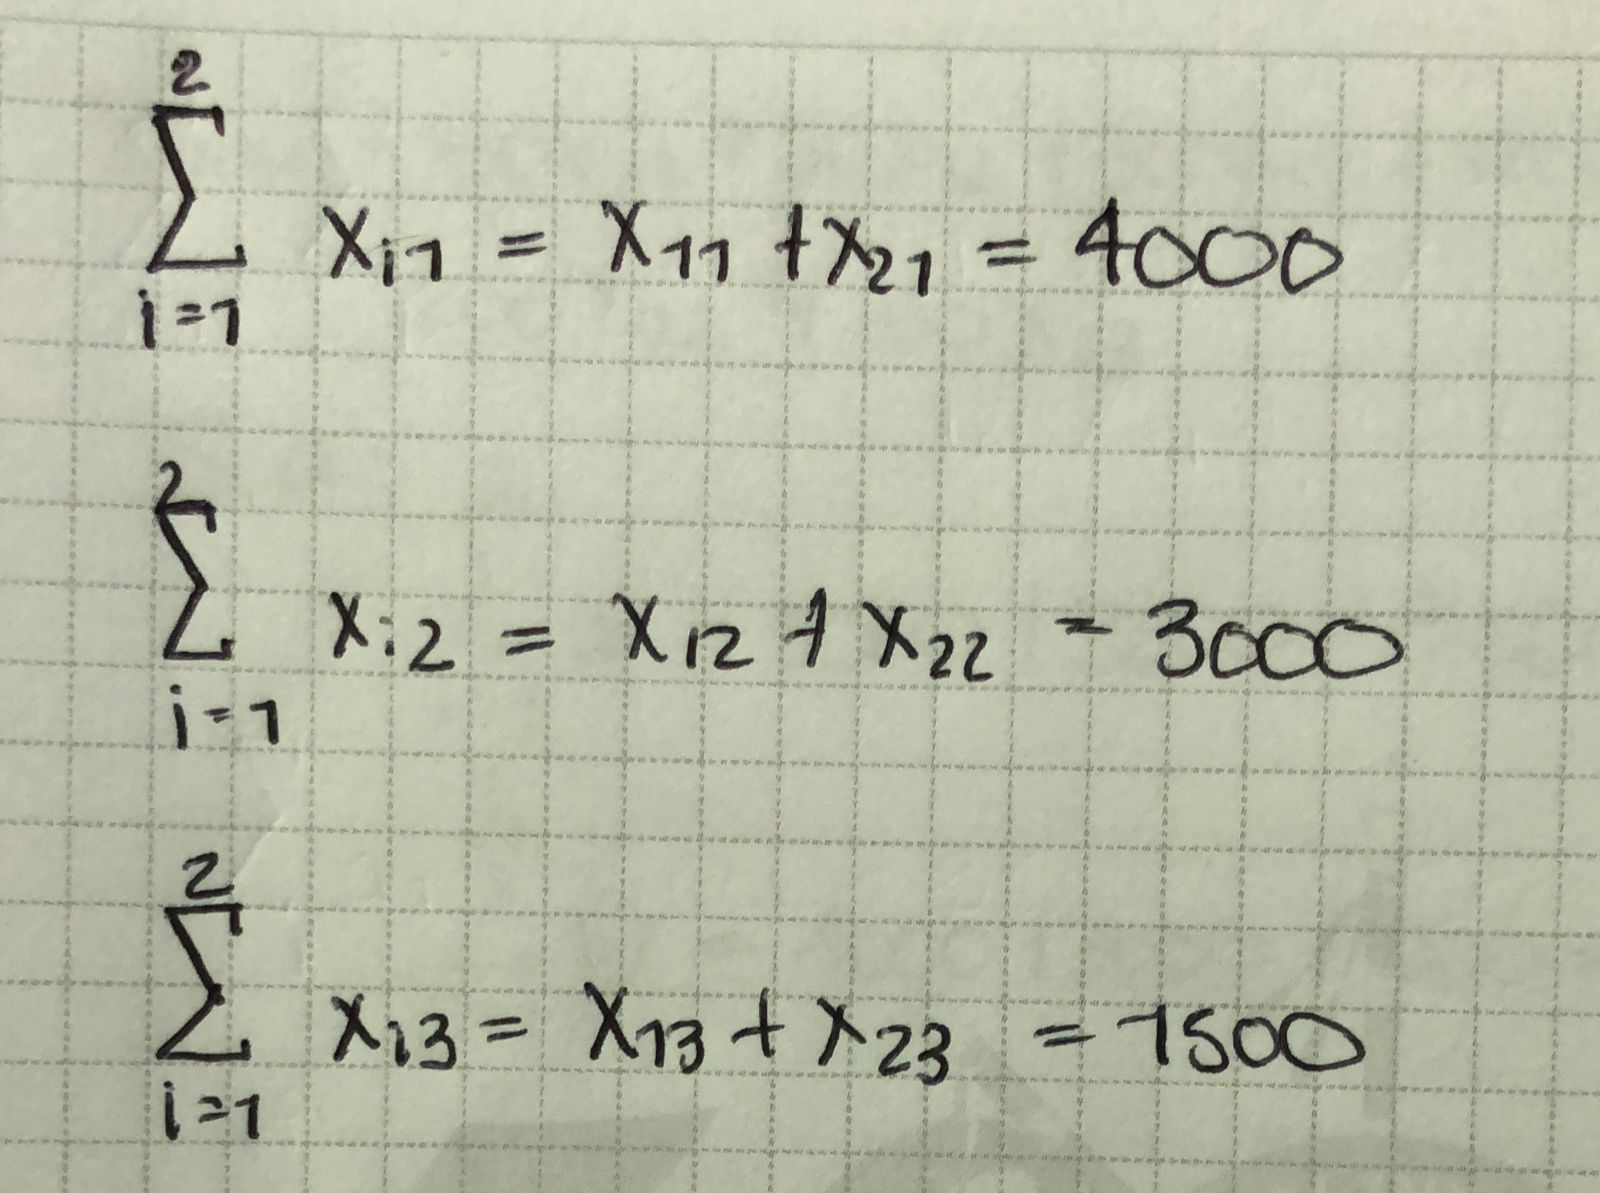 \sum_{i=1}^{2} x_{i1} = x_{11} + x_{21} = 4000
\sum_{i=1}^{2} x_{i2} = x_{12} + x_{22} = 3000
\sum_{i=1}^{2} x_{i3} = x_{13} + x_{23} = 1500